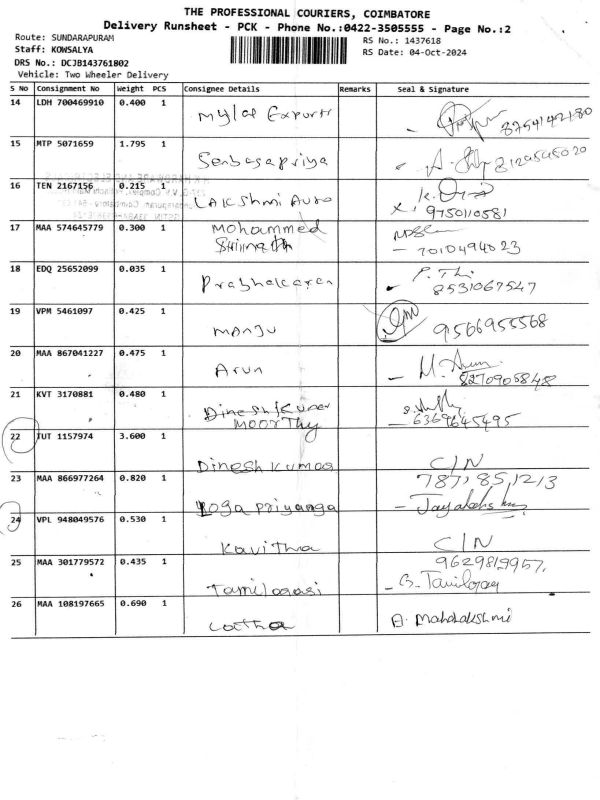 THE PROFESSIONAL COURIERS, COIMBATORE
Delivery Runsheet - PCK - Phone No.:0422-3505555 - Page No.:2
Route: SUNDARAPURAM
RS No.: 1437618
Staff: KOWSALYA
RS Date: 04-Oct-2024
DRS No.: DCJB143761802
Vehicle: Two Wheeler Delivery
S No Consignment No Weight PCS Consignee Details Remarks Seal & Signature
14 LDH 700469910 0.400 1 Mylap Exports
8754142180
15 MTP 5071659 1.795 1 Senbagapriya
8129545020
16 TEN 2167156 0.215 1 LAKShmi Auto
9750110581
17 MAA 574645779 0.300 1 Mohammed
7010494023
18 EDQ 25652099 0.035 1 Prabhakaran
8531067547
19 VPM 5461097 0.425 1 manju
9566955568
20 MAA 867041227 0.475 1 Arun
8270905848
21 KVT 3170881 0.480 1 Dinesh Kumar
MOORThy
6369645495
22 TUT 1157974 3.600 1 Dinesh Kumar C/N
23 MAA 866977264 0.820 1 Yoga Priyanga
24 VPL 948049576 0.530 1 Kavitha C/N
25 MAA 301779572 0.435 1 Tamilarasi
9629819957
26 MAA 108197665 0.690 1 Latha A. Mahalakshmi